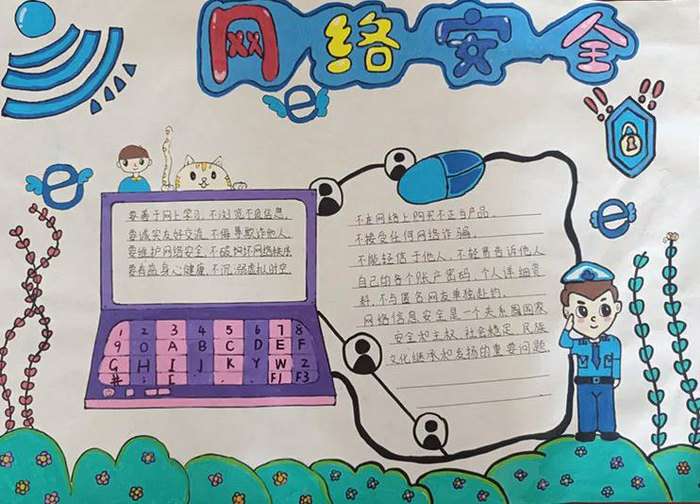 网络安全
要善于网上学习,不浏览不良信息,
要诚实友好交流,不侮辱欺诈他人,
要维护网络安全,不破坏网络秩序,
要有益身心健康,不沉溺虚拟时空.
不在网络上购买不正当产品.
不接受任何网络诈骗.
不能轻信于他人,不轻易告诉他人
自己的各个账户密码,个人详细资
料,不与匿名网友单独赴约.
网络信息安全是一个关系国家
安全和主权,社会稳定,民族
文化继承和发扬的重要问题.
1 2 3 4 5 6 7 8
9 0 A B C D E F
G H I J K Y W Z
# : [ F1 F3